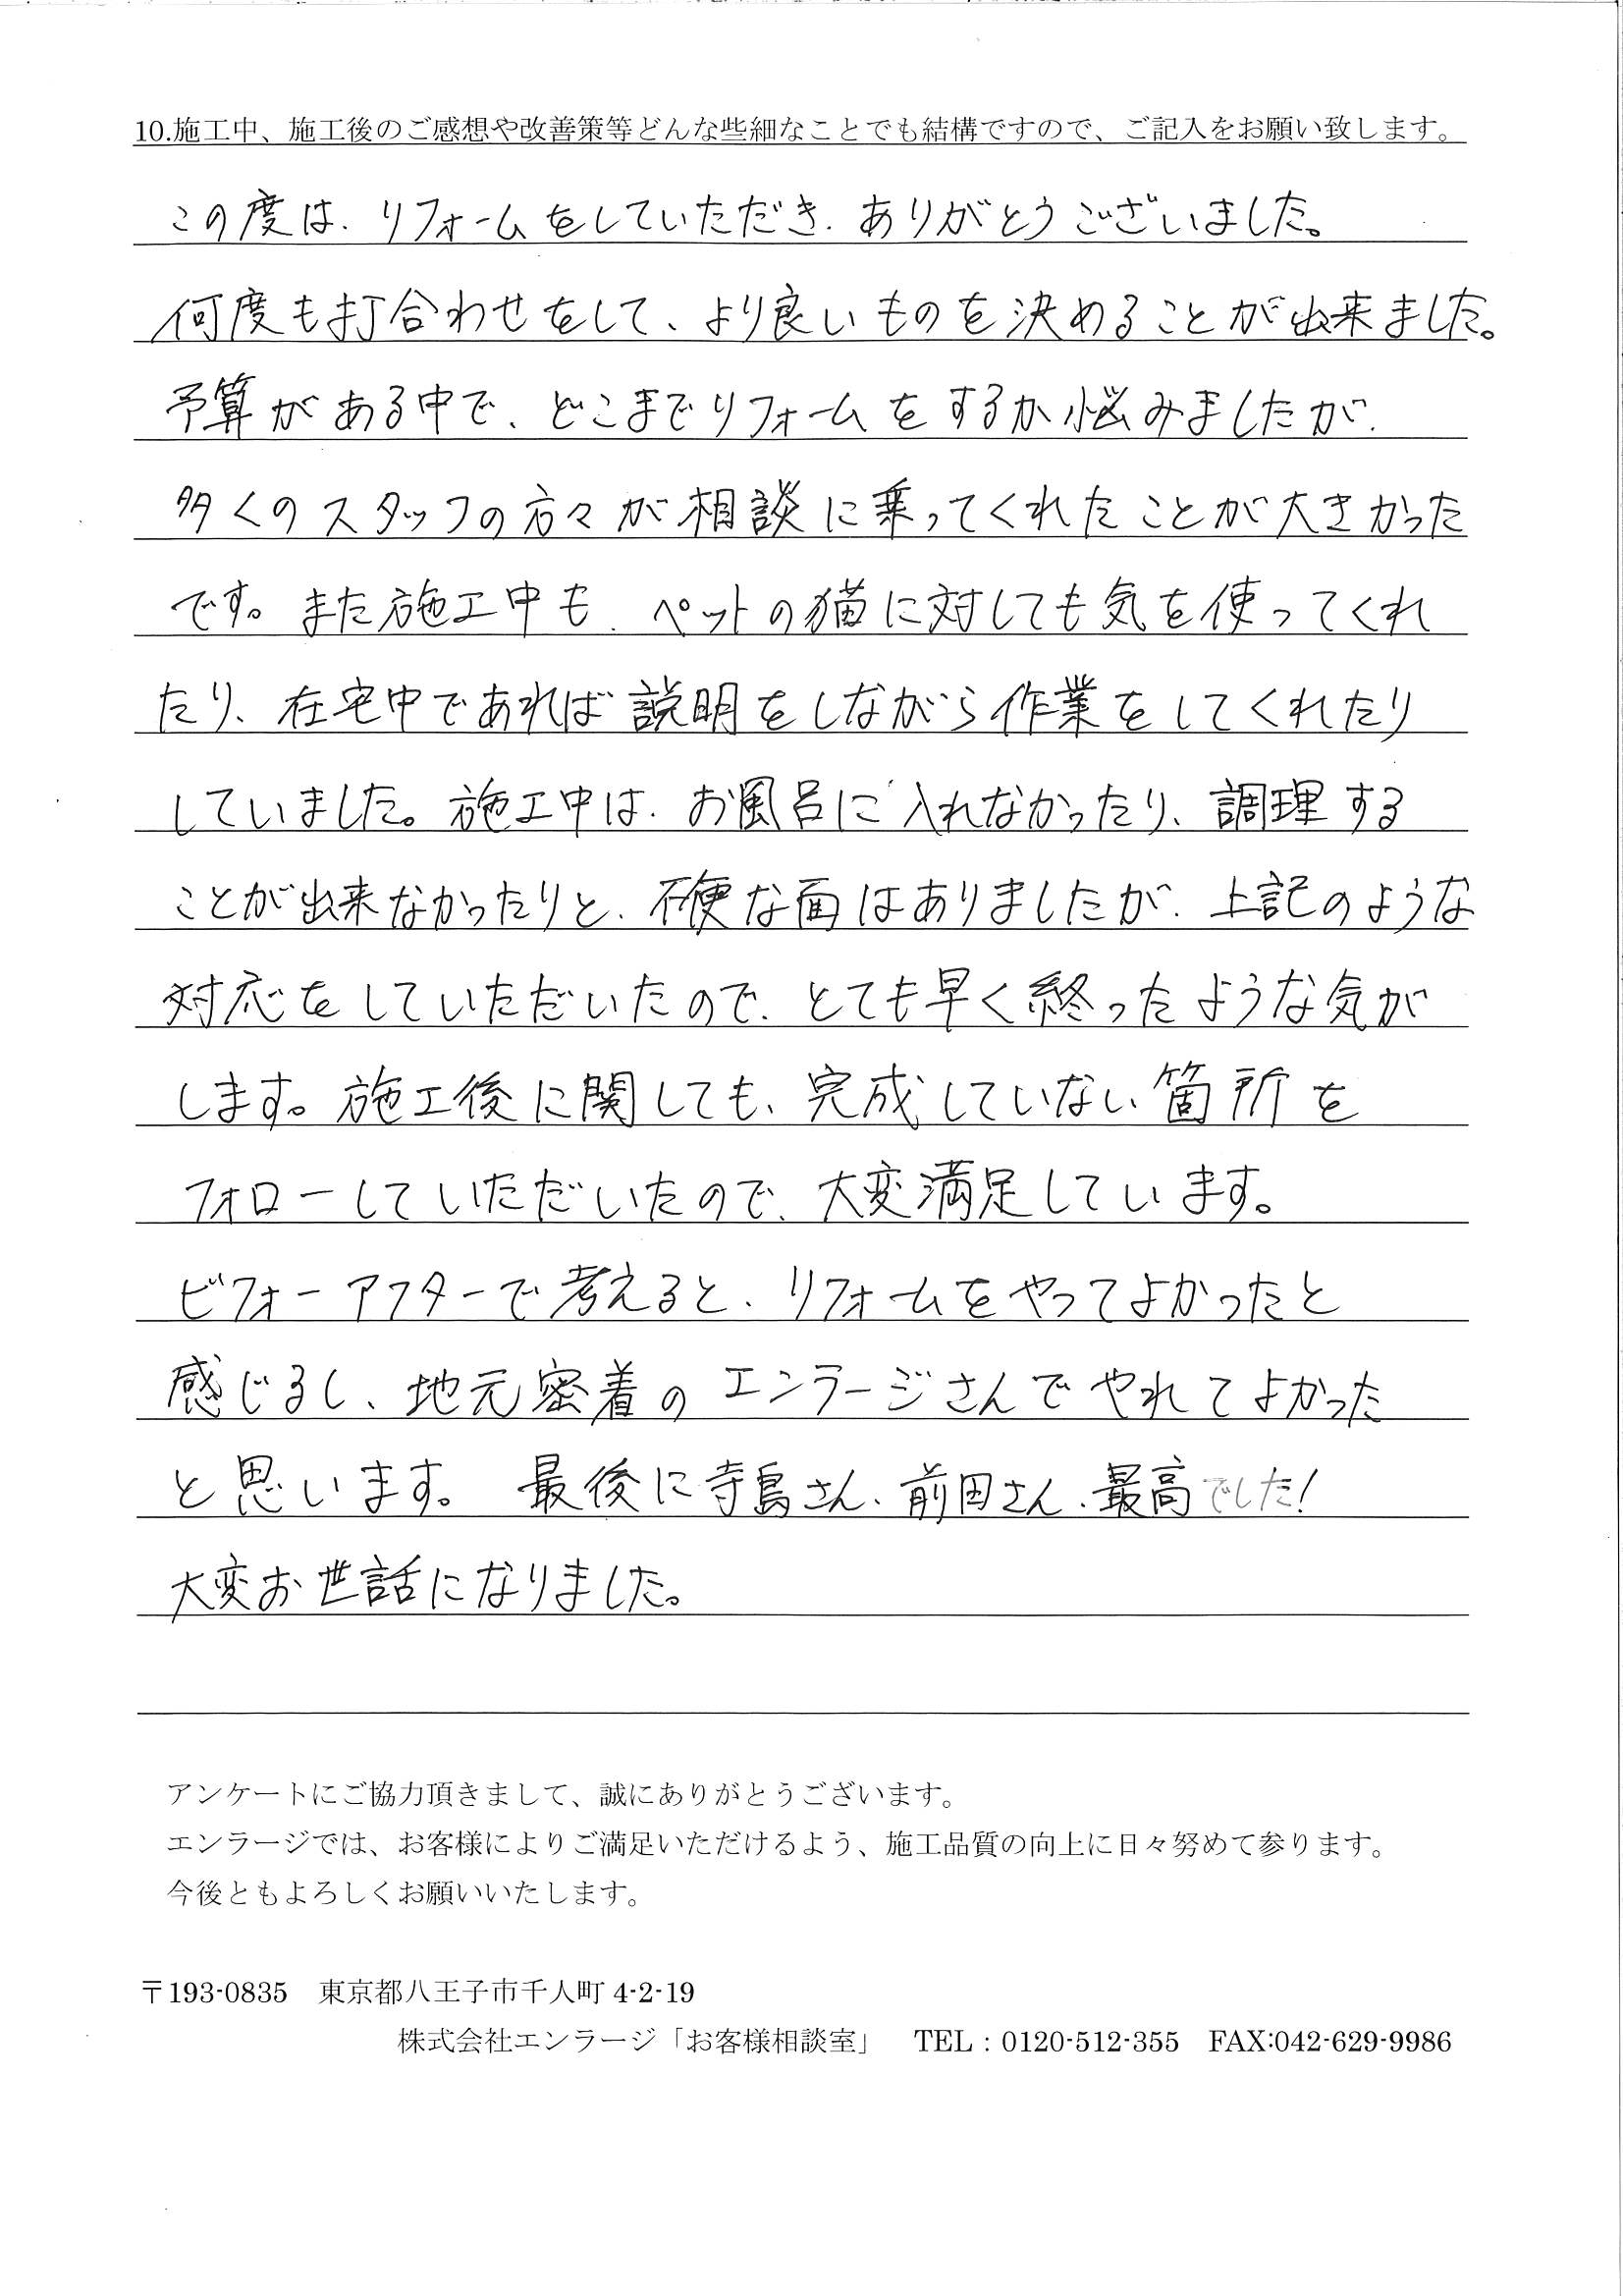 10.施工中、施工後のご感想や改善策等どんな些細なことでも結構ですので、ご記入をお願い致します。
この度は、リフォームをしていただき、ありがとうございました。
何度も打合わせをして、より良いものを決めることが出来ました。
予算がある中で、どこまでリフォームをするか悩みましたが、
多くのスタッフの方々が相談に乗ってくれたことが大きかった
です。また施工中も、ペットの猫に対しても気を使ってくれ
たり、在宅中であれば説明をしながら作業をしてくれたり
していました。施工中は、お風呂に入れなかったり、調理する
ことが出来なかったりと、不便な面はありましたが、上記のような
対応をしていただいたので、とても早く終ったような気が
します。施工後に関しても、完成していない箇所を
フォローしていただいたので、大変満足しています。
ビフォーアフターで考えると、リフォームをやってよかったと
感じるし、地元密着のエンラージさんでやれてよかった
と思います。 最後に寺島さん、前田さん、最高でした!
大変お世話になりました。
アンケートにご協力頂きまして、誠にありがとうございます。
エンラージでは、お客様によりご満足いただけるよう、施工品質の向上に日々努めて参ります。
今後ともよろしくお願いいたします。
〒193-0835 東京都八王子市千人町 4-2-19
株式会社エンラージ「お客様相談室」 TEL:0120-512-355 FAX:042-629-9986